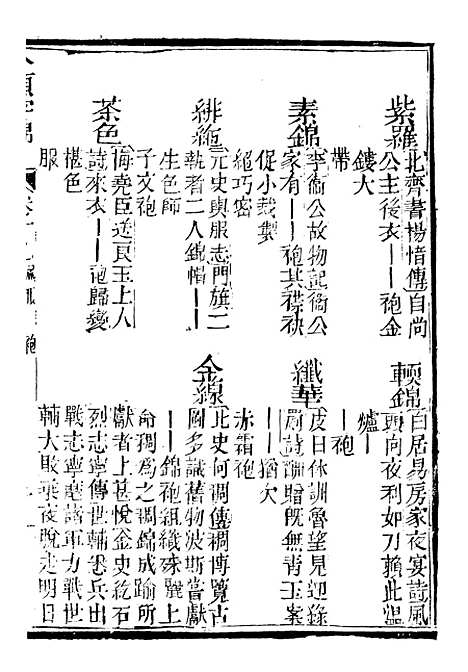 紫羅 北齊書楊愔傳自尚
公主後衣——袍金
鏤大
帶
素錦 李衞公故物記衞公
家有——袍其襟袂
促小裁製
絕巧密
緋絁 元史輿服志門旗二
執者二人錦帽——
生色師
子文袍
茶色 梅堯臣送良玉上人
詩來衣——袍歸變
椹色
服
輭錦 白居易房家夜宴詩風
頭向夜利如刀賴此溫
爐——
——袍
纖華 皮日休訓魯望見迎綠
罽詩酬贈旣無靑玉案
——猶欠
赤霜袍
金線 北史何稠傳稠博覽古
圖多識舊物波斯嘗獻
——錦袍組織殊麗上
命稠爲之稠錦成踰所
獻者上甚悅金史紇石
烈志寧傳世輔悉兵出
戰志寧麾諸軍力戰世
輔大敗乘夜脫走明日